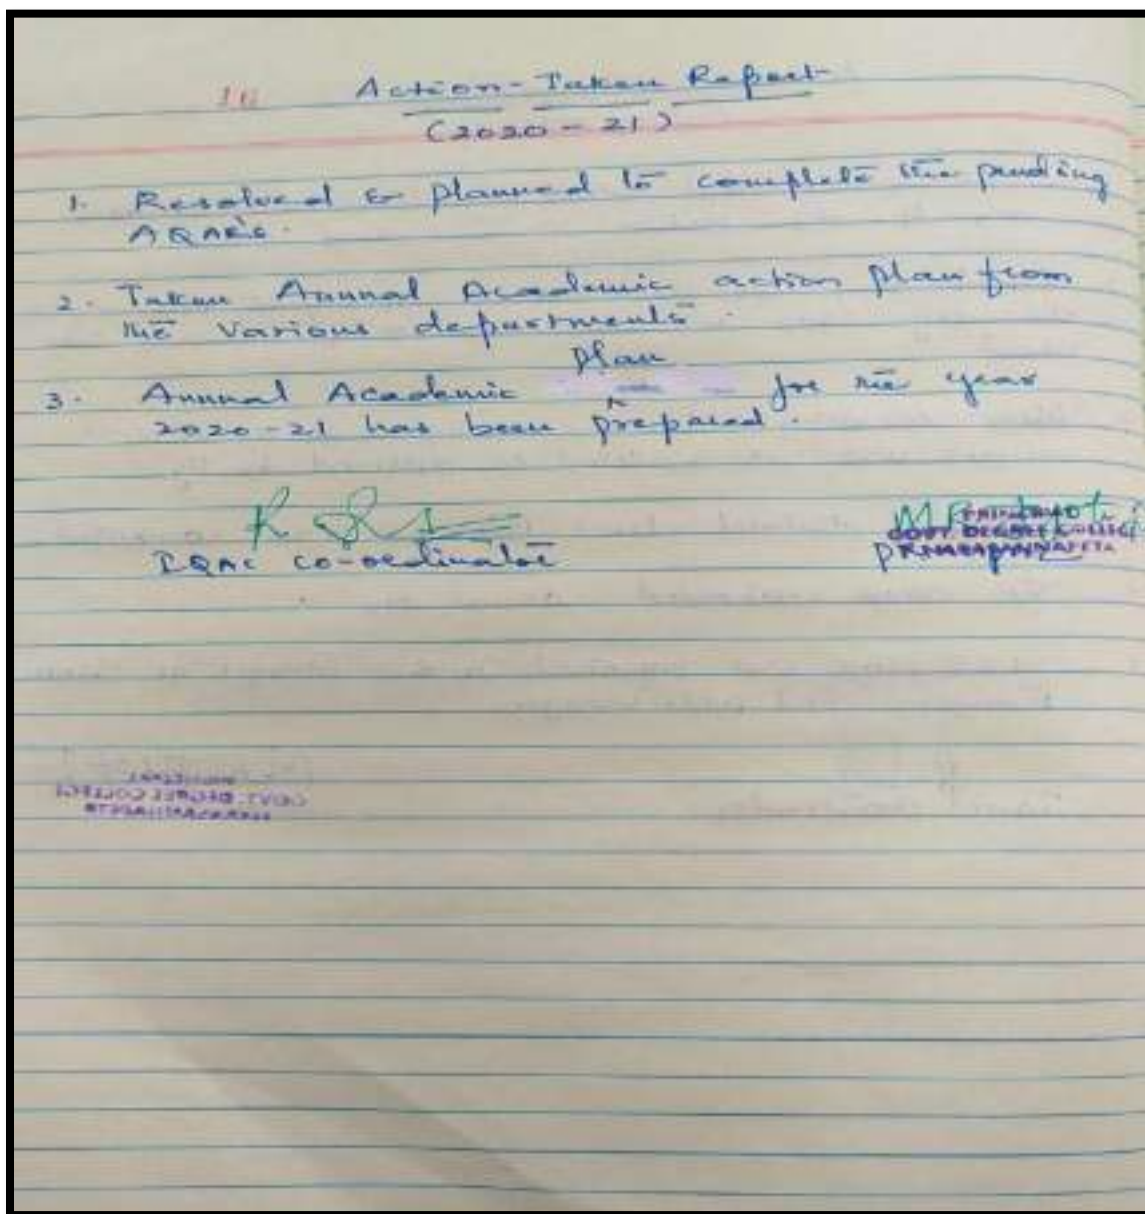 Action-Taken Report
(2020-21)
1. Resolved & planned to complete the pending
AQAR's.
2. Taken Annual Academic action plan from
the various departments.
plan
3. Annual Academic ^ for the year
2020-21 has been prepared.
IQAC Co-ordinator
PRINCIPAL
GOVT. DEGREE COLLEGE